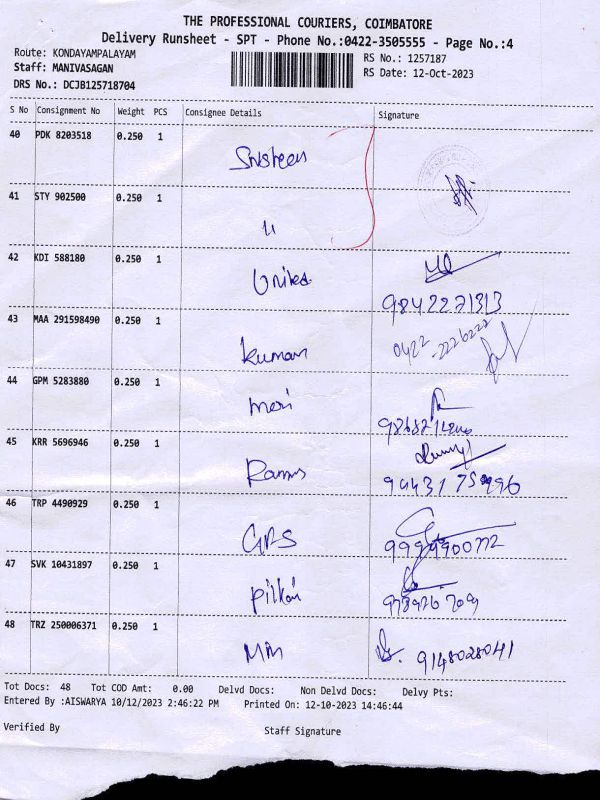 THE PROFESSIONAL COURIERS, COIMBATORE
Delivery Runsheet - SPT - Phone No.:0422-3505555 - Page No.:4
Route: KONDAYAMPALAYAM
RS No.: 1257187
Staff: MANIVASAGAN
RS Date: 12-Oct-2023
DRS No.: DCJB125718704
S No Consignment No Weight PCS Consignee Details Signature
40 PDK 8203518 0.250 1
41 STY 902500 0.250 1 11
42 KDI 588180 0.250 1 United
9842271313
43 MAA 291598490 0.250 1 Kumar
0422
-2226222
44 GPM 5283880 0.250 1 meri
45 KRR 5696946 0.250 1
46 TRP 4490929 0.250 1 GPS
47 SVK 10431897 0.250 1
48 TRZ 250006371 0.250 1 MM
9148028041
Tot Docs: 48 Tot COD Amt: 0.00 Delvd Docs: Non Delvd Docs: Delvy Pts:
Entered By :AISWARYA 10/12/2023 2:46:22 PM Printed On: 12-10-2023 14:46:44
Verified By
Staff Signature